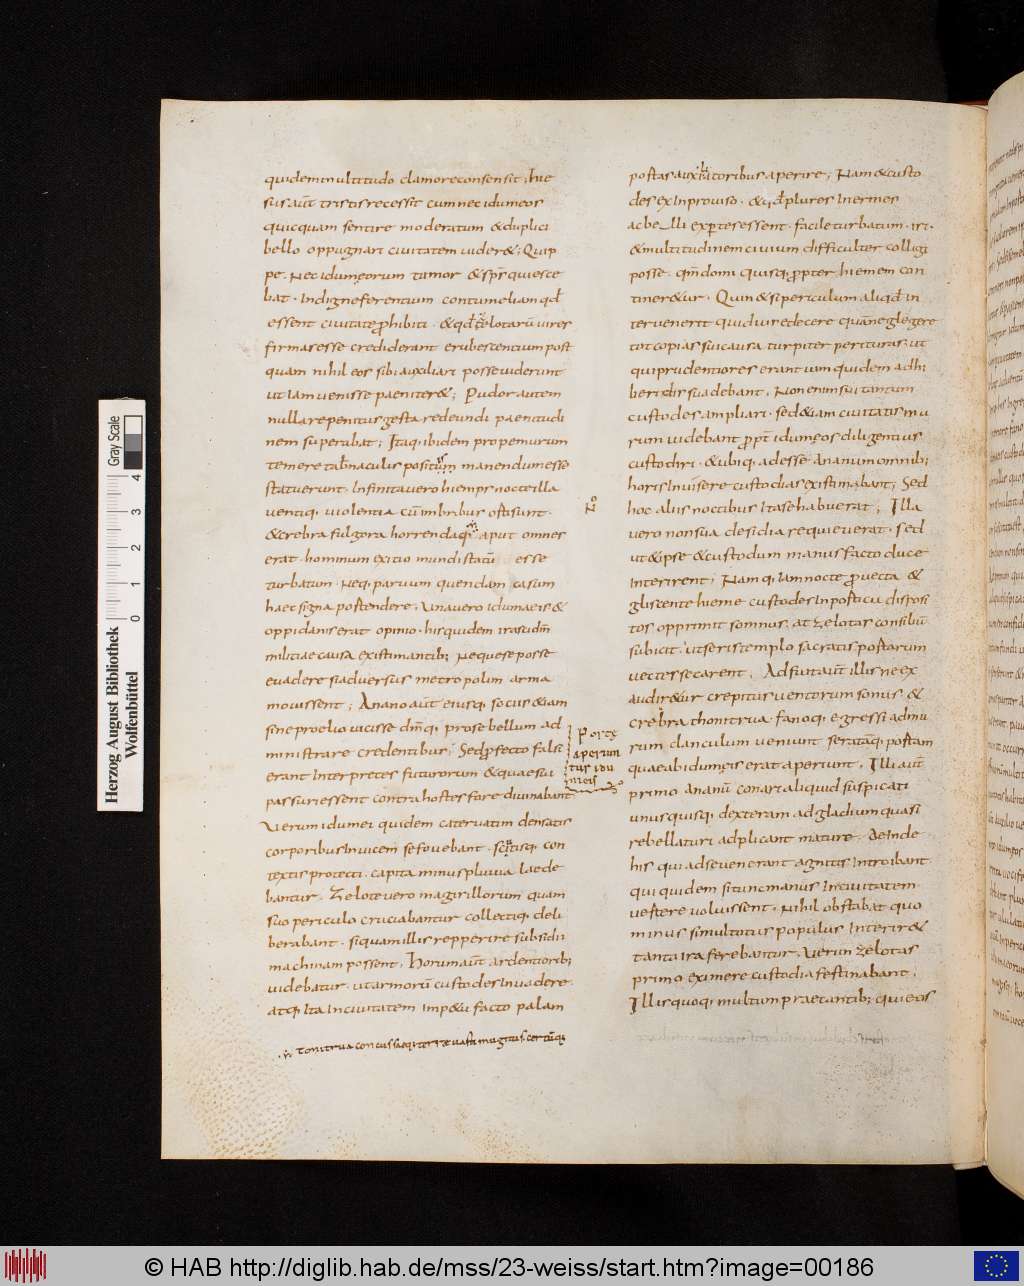 quidem multitudo clamore consensit; hie
sus aut̄ tristis recessit cum nec idumeos
quicquam sentire moderatum & duplici
bello oppugnari civitatem uider&; Quip
pe. Nec idumęorum tumor & sp̄r quiesce
bat. Indigne ferentium contumeliam qđ
essent civitate prohibiti. & qđ zelotarū uires
firmas esse crediderant erubescentium post
quam nihil eos sibi auxiliari posse uiderunt
ut iam uenisse paeniter&; Pudor autem
nulla repenitus gesta redeundi paenitudi
nem superabat; Itaq; ibidem prope murum
temere tab̄naculis positum manendum esse
statuerunt. Infinita uero hiemps nocte illa
uentiq; uiolentia cū imbribus
& crebra fulgora horrendaq; aput omnes
erat. hominum exitio mundi statū esse
turbatum. Neq; paruum quendam casum
haec signa postendere. Una uero idumaeis &
oppidanis erat opinio. his quidem irasci dm̄
militiae causa existimantib; Neque se posse
euadere si aduersus metropolim arma
mouissent; Anano aut̄ eiusq; socus & iam
sine proelio uicisse dm̄q; pro se bellum ad
ministrare credentibus; Sed profecto falsi
erant interpretes futurorum & quae sui
passuri essent contra hostes fore diuinabant
Verum idumei quidem cateruatim densatis
corporibus inuicem se fouebant. scutisq; con
textis protecti. capita minus pluuia laede
bantur. Zelote uero magis illorum quam
suo periculo cruciabantur collectiq; deli
berabant. siquam illis repperire subsidii
machinam possent. Horum aut̄ ardentiorib;
uidebatur. ut armorū custodes inuadere.
atq; ita in ciuitatem imp&u facto palam
tonitrua concussaeq; terre uasti mugitus. certūq;
Portę
aperiun
tur idu
meis
N
portas auxiliatoribus aperire; Nam & custo
des ex inprouiso. & qđ plures inermes
ac belli expertes essent. facile turbatum iri.
& multitudinem ciuium difficulter colligi
posse. qm̄ domi quisq; propter hiemem con
tiner&ur. Quin & si periculum aliqđ in
teruenerit quiduis edecere quā neglegere
tot copias sui causa turpiter perituras; ut
qui prudentiores erant uim quidem adhi
beri dissuadebant. Non enim sui tantum
custodes ampliari. sed & iam ciuitatis mu
rum uidebant propt̄ idumęos diligentius
custodiri. & ubiq; adesse ananum omnib;
horis inuisere custodias existimabant; Sed
hoc aliis noctibus ita se habuerat; Illa
uero non sua desidia requieuerat. sed
ut & ipse & custodum manus facto duce
interirent; Nam q; iam nocte prouecta &
gliscente hieme custodes in porticu disposi
tos opprimit somnus. at zelotas consiliū
subicit. ut serris templo sacratis portarum
uectes secarent. Adfuit aut̄ illis ne ex
audir&ur crepitus uentorum sonus &
crebra thonitrua. fanoq; egressi ad mu
rum clanculum ueniunt serratāq; portam
quae ab idumęis erat aperiunt. Illi aut̄
primo ananū conari aliquid suspicati
unusquisq; dexteram ad gladium quasi
rebellaturi adplicant mature. deinde
his qui ad se uenerant agnitis introibant.
qui quidem si tunc manus in ciuitatem
uertere uoluissent. nihil obstabat quo
minus simul totus populus interir&
tanta ira ferebantur. Verum zelotas
primo eximere custodia festinabant.
Illis quoq; multum praecantib; qui eos
Gray Scale
0 1 2 3 4
Herzog August Bibliothek
Wolfenbüttel
© HAB http://diglib.hab.de/mss/23-weiss/start.htm?image=00186